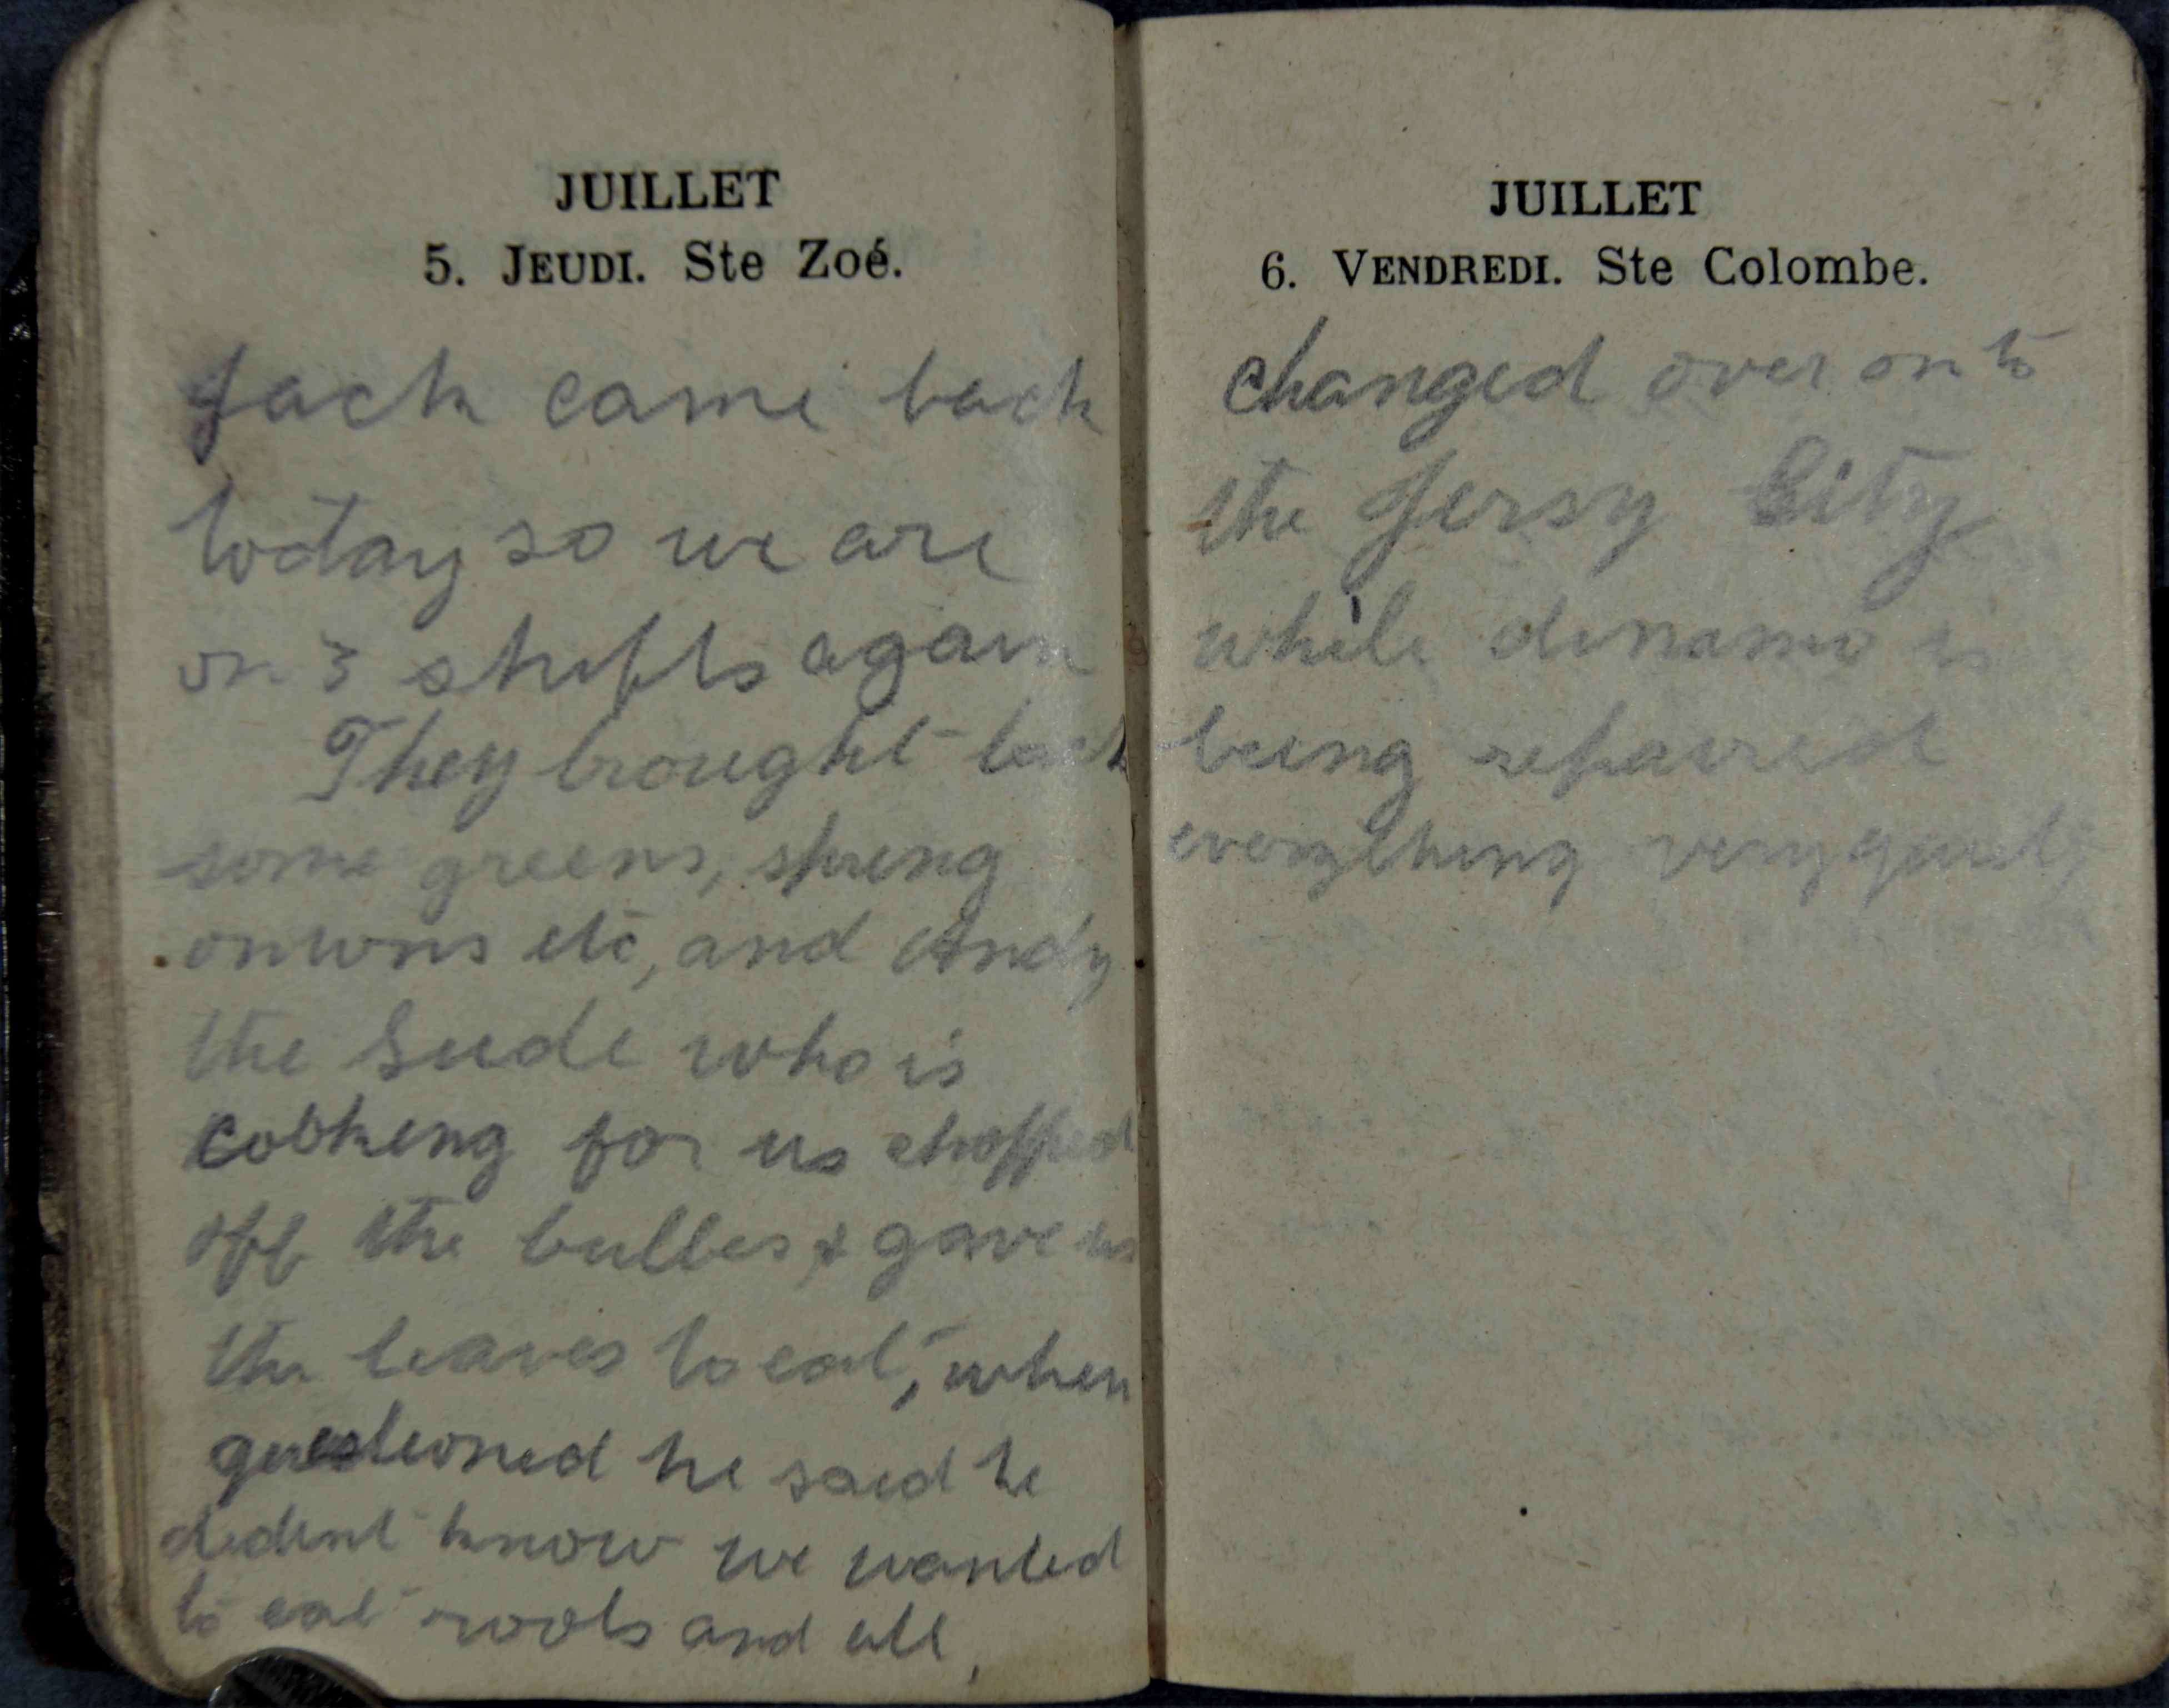 JUILLET
5. JEUDI. Ste Zoé.
Jack came back
today so we are
on 3 shifts again
They brought back
some greens, spring
onions etc, and Andy
the Suede who is
cooking for us chopped
off the bulbes & gave us
the leaves to eat, when
questioned he said he
dident know we wanted
to eat roots and all,
JUILLET
6. VENDREDI. Ste Colombe.
changed over on to
the Jersy City
while dinamo is
being repaired
everything very quiet,